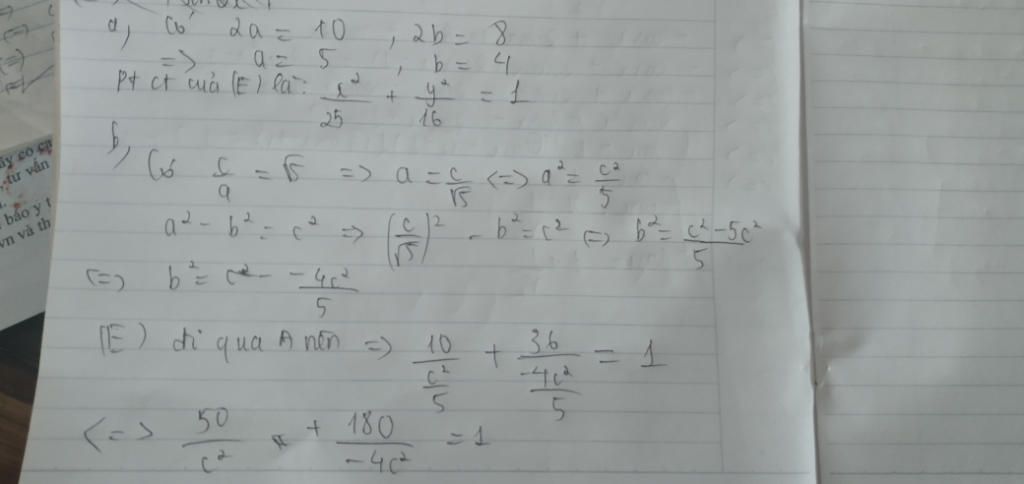 a, Có 2a = 10 , 2b = 8
=> a = 5 , b = 4
Pt ct của (E) là: x²/25 + y²/16 = 1
b,
Có c/a = √5 => a = c/√5 <=> a² = c²/5
a² - b² = c² => (c/√5)² - b² = c² <=> b² = (c² - 5c²)/5
<=> b² = -4c²/5
(E) đi qua A nên => 10/(c²/5) + 36/(-4c²/5) = 1
<=> 50/c² + 180/(-4c²) = 1
ây có
tư vấn
báo y t
vn và th